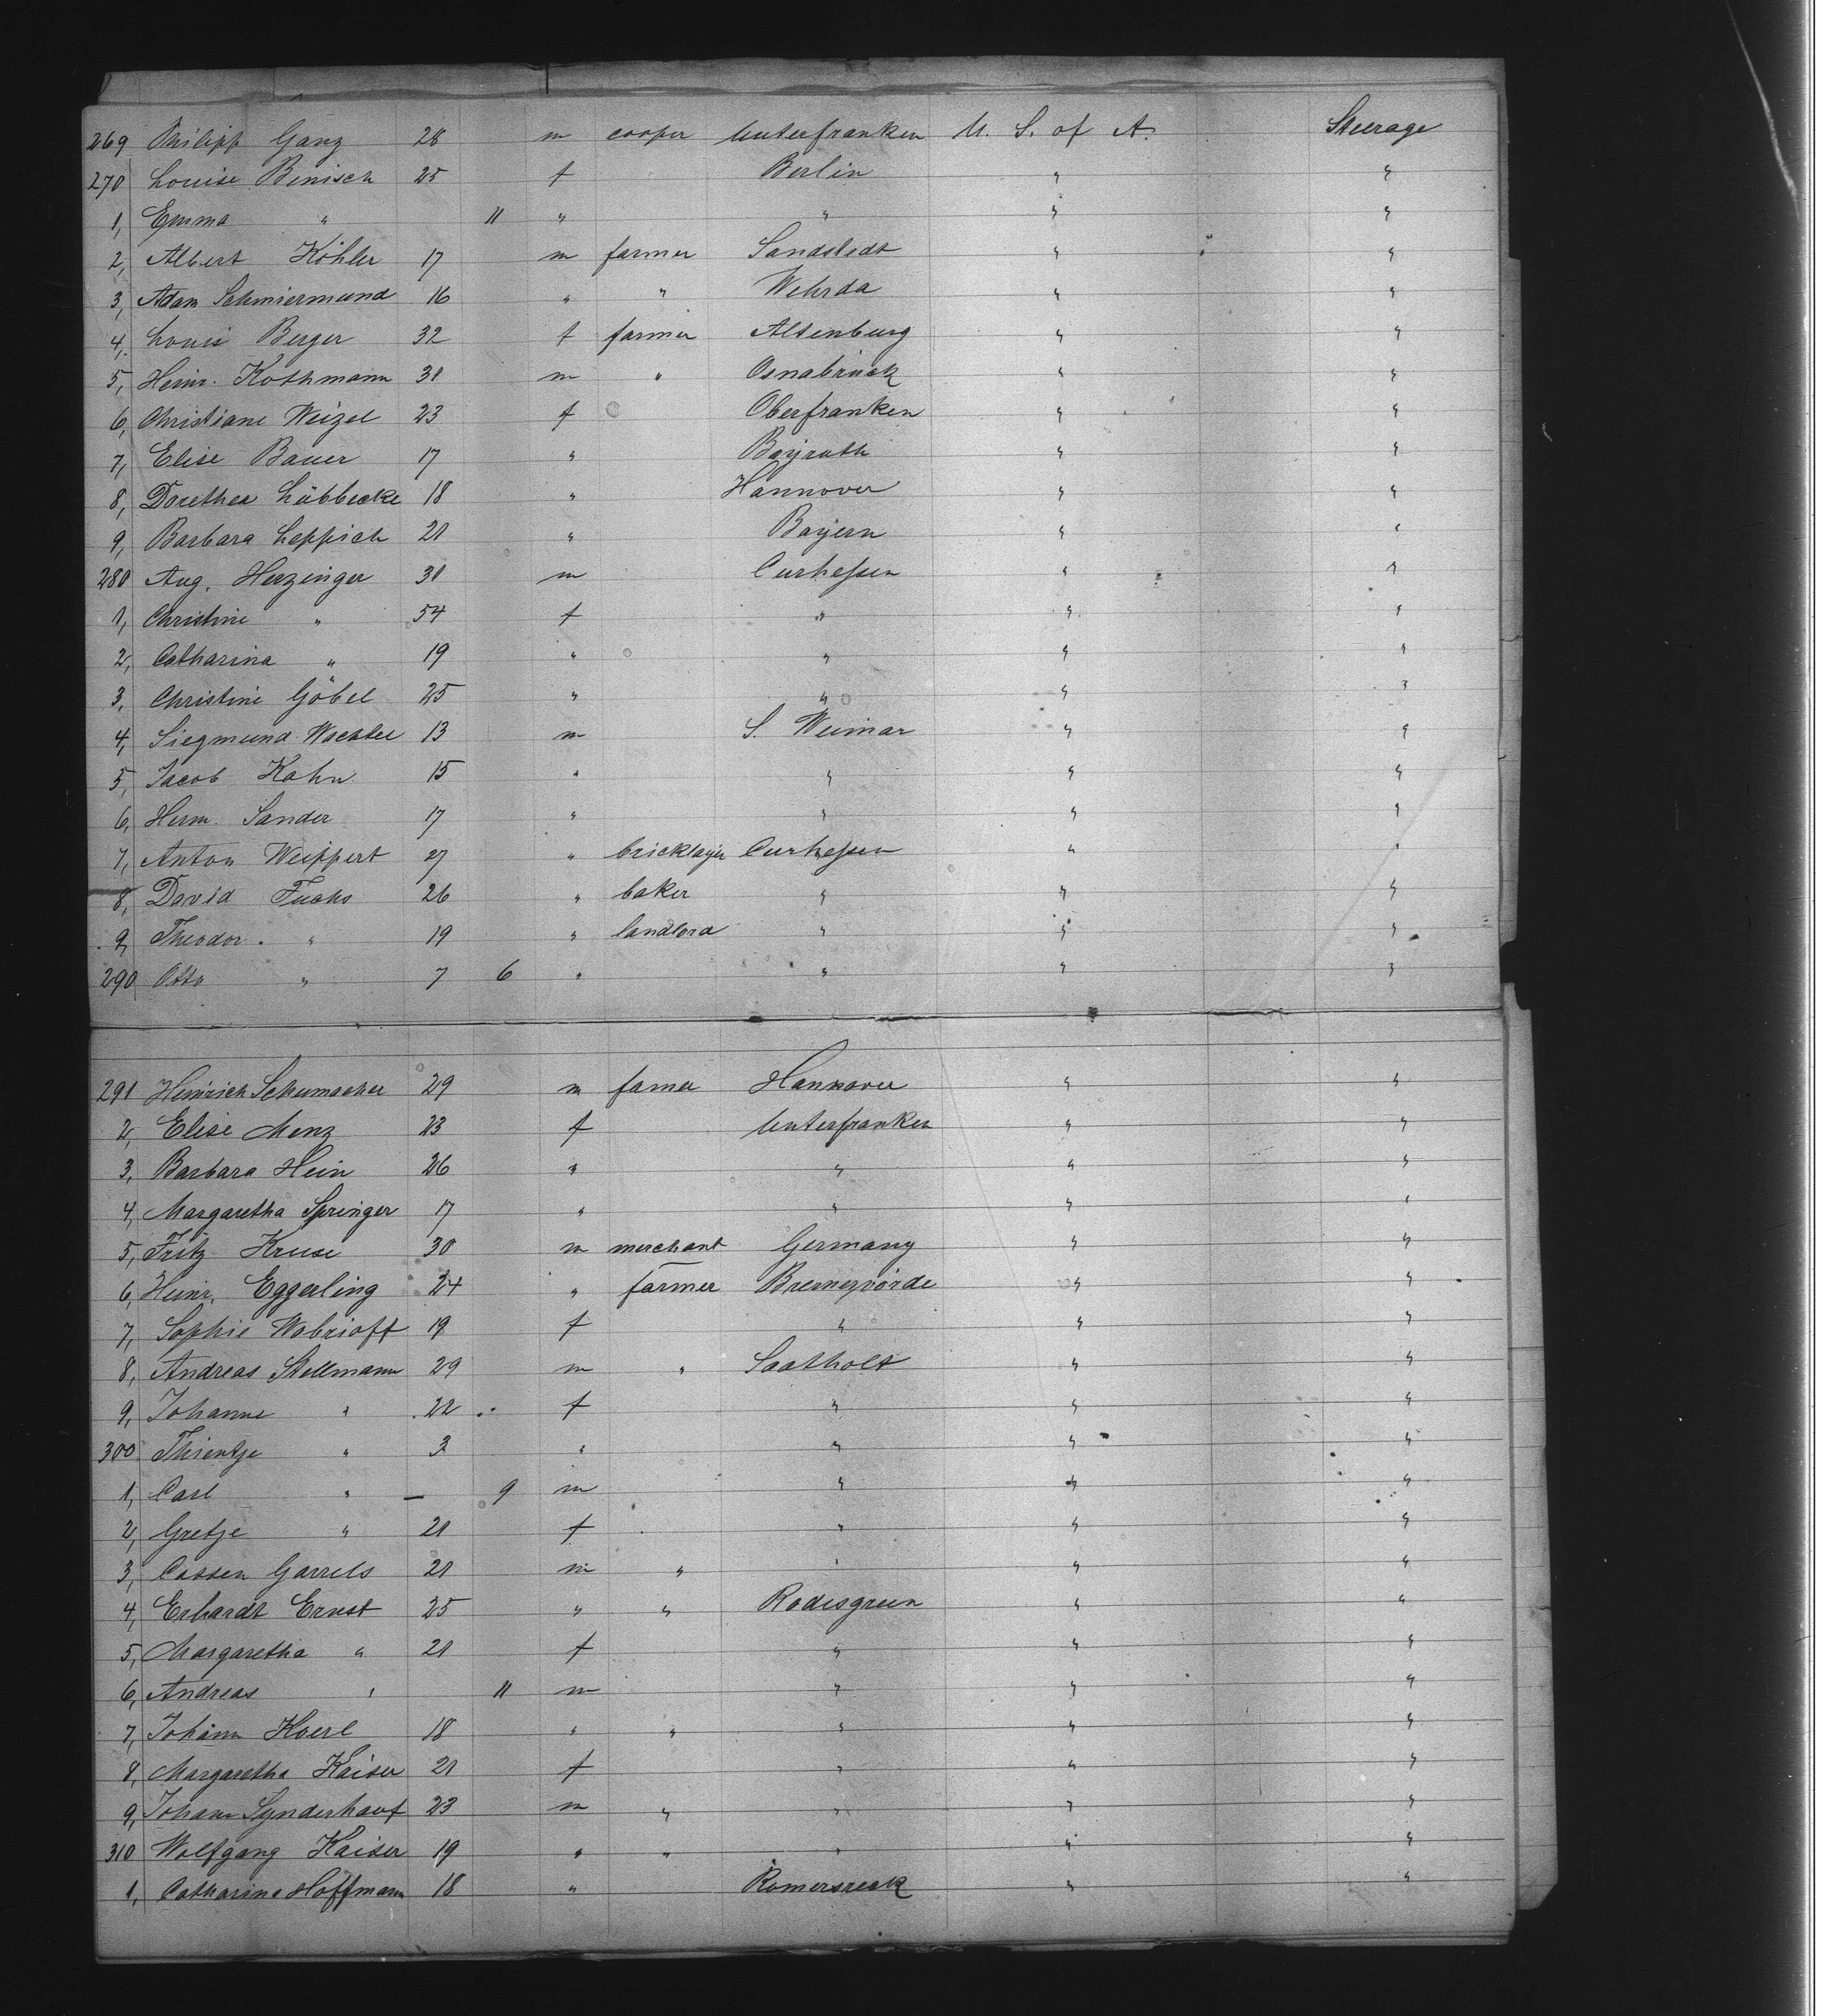 269 Philipp Ganz 28 m cooper Unterfranken U. S. of A. Steerage
270 Louise Benisch 25 f Berlin " "
1, Emma " 11 " " " "
2, Albert Köhler 17 m farmer Sandstedt " "
3, Adam Schmiermund 16 " " Wehrda " "
4, Louis Berger 32 f farmer Altenburg " "
5, Heinr. Kothmann 30 m " Osnabrück " "
6, Christiane Weizel 23 f Oberfranken " "
7, Elise Bauer 17 " Bayruth " "
8, Dorethea Lübbecke 18 " Hannover " "
9, Barbara Leppich 20 " Bayern " "
280 Aug. Herzinger 30 m Curhessen " "
1, Christine " 54 f " " "
2, Catharina " 19 " " " "
3, Christine Göbel 25 " " " "
4, Siegmund Wachtel 13 m S. Weimar " "
5, Jacob Kahn 15 " " " "
6, Herm. Sander 17 " " " "
7, Anton Weippert 27 " bricklayer Curhessen " "
8, David Fuchs 26 " baker " " "
9, Theodor " 19 " landlord " " "
290 Otto " 7 6 " " " "
291 Heinrich Schumacher 29 m famer Hannover " "
2, Elise Menz 23 f Unterfranken " "
3, Barbara Hein 26 " " " "
4, Margaretha Springer 17 " " " "
5, Fritz Kruse 30 m merchant Germany " "
6, Heinr. Eggerling 24 " farmer Bremervörde " "
7, Sophie 19 f " " "
8, Andreas Stellmann 29 m " Saatholt " "
9, Johanne " 22 f " " "
300 Thientje " 3 " " " "
1, Carl " — 9 m " " "
2, Gretje " 20 f " " "
3, Cassen Garrels 20 m " " " "
4, Erhardt Ernst 25 " " Rodesgreen " "
5, Margaretha " 20 f " " "
6, Andreas " 11 m " " "
7, Johann Hoerl 18 " " " " "
8, Margaretha Kaiser 20 f " " "
9, Johann Synderhauf 23 m " " " "
310 Wolfgang Kaiser 19 " " " " "
1, Catharina Hoffmann 18 " Romersreek " "